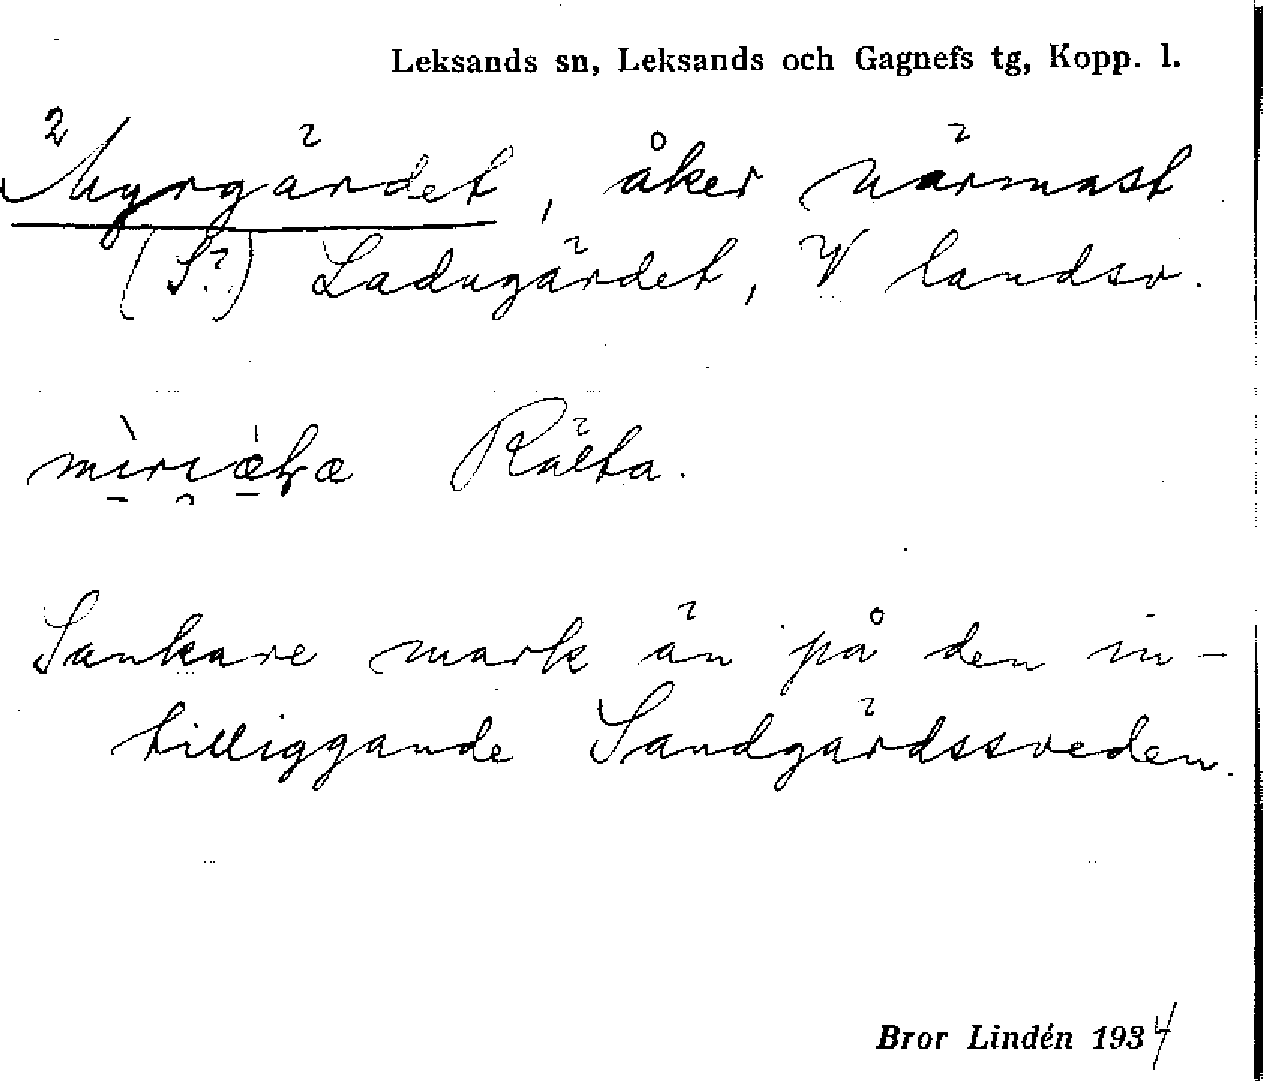 Leksands sn, Leksands och Gagnefs tg, Kopp. l.
2 Myrgärdet, åker närmast
(S?) Ladugärdet, V landsv.
Rälta.
Sankare mark än på den in-
tilliggande Sandgärdssveden.
Bror Lindén 1934